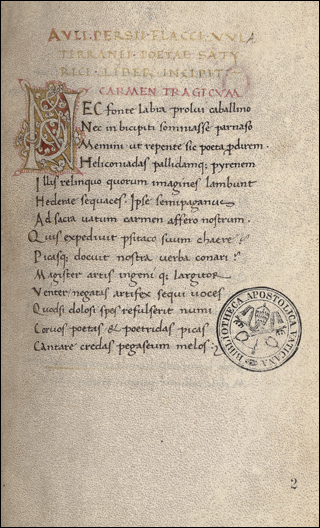 AVLI·PERSII·FLACCI·VVLA
TERRANII·POETAE SATY
RICI·LIBER INCIPIT·
CARMEN TRAGICVM
NEC fonte labra prolui caballino
Nec in bicipiti somniasse parnaso
Memini ut repente sic poeta pdirem·
Heliconiadas pallidamq; pyrenem
Illis relinquo quorum imagines lambunt
Hederae sequaces· Ipse semipaganus
Ad sacra uatum carmen affero nostrum·
Quis expediuit psitaco suum chaere
Picasq; docuit nostra uerba conari?
Magister artis ingeni q; largitor
Venter negatas artifex sequi uoces
Quodsi dolosi spes refulserit numi
Coruos poetas & poetridas picas
Cantare credas pegaseum melos:
BIBLIOTHECA APOSTOLICA VATICANA
2